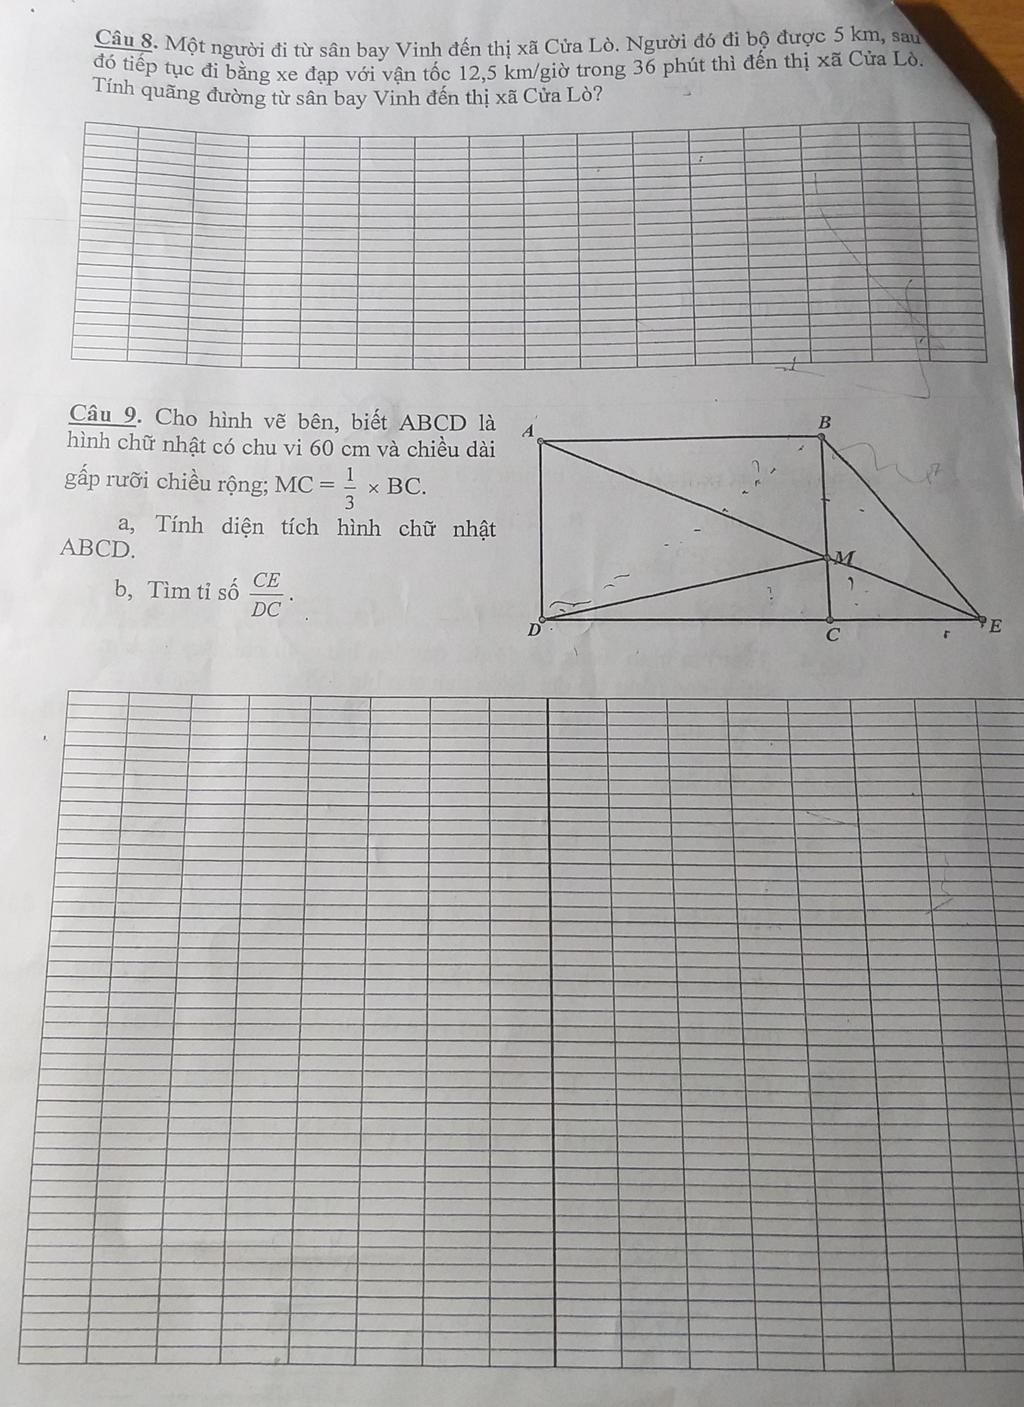 Câu 8. Một người đi từ sân bay Vinh đến thị xã Cửa Lò. Người đó đi bộ được 5 km, sau
đó tiếp tục đi bằng xe đạp với vận tốc 12,5 km/giờ trong 36 phút thì đến thị xã Cửa Lò.
Tính quãng đường từ sân bay Vinh đến thị xã Cửa Lò?
Câu 9. Cho hình vẽ bên, biết ABCD là
hình chữ nhật có chu vi 60 cm và chiều dài
gấp rưỡi chiều rộng; MC = 1/3 × BC.
a, Tính diện tích hình chữ nhật
ABCD.
b, Tìm tỉ số CE/DC.
A
B
M
D
C
E